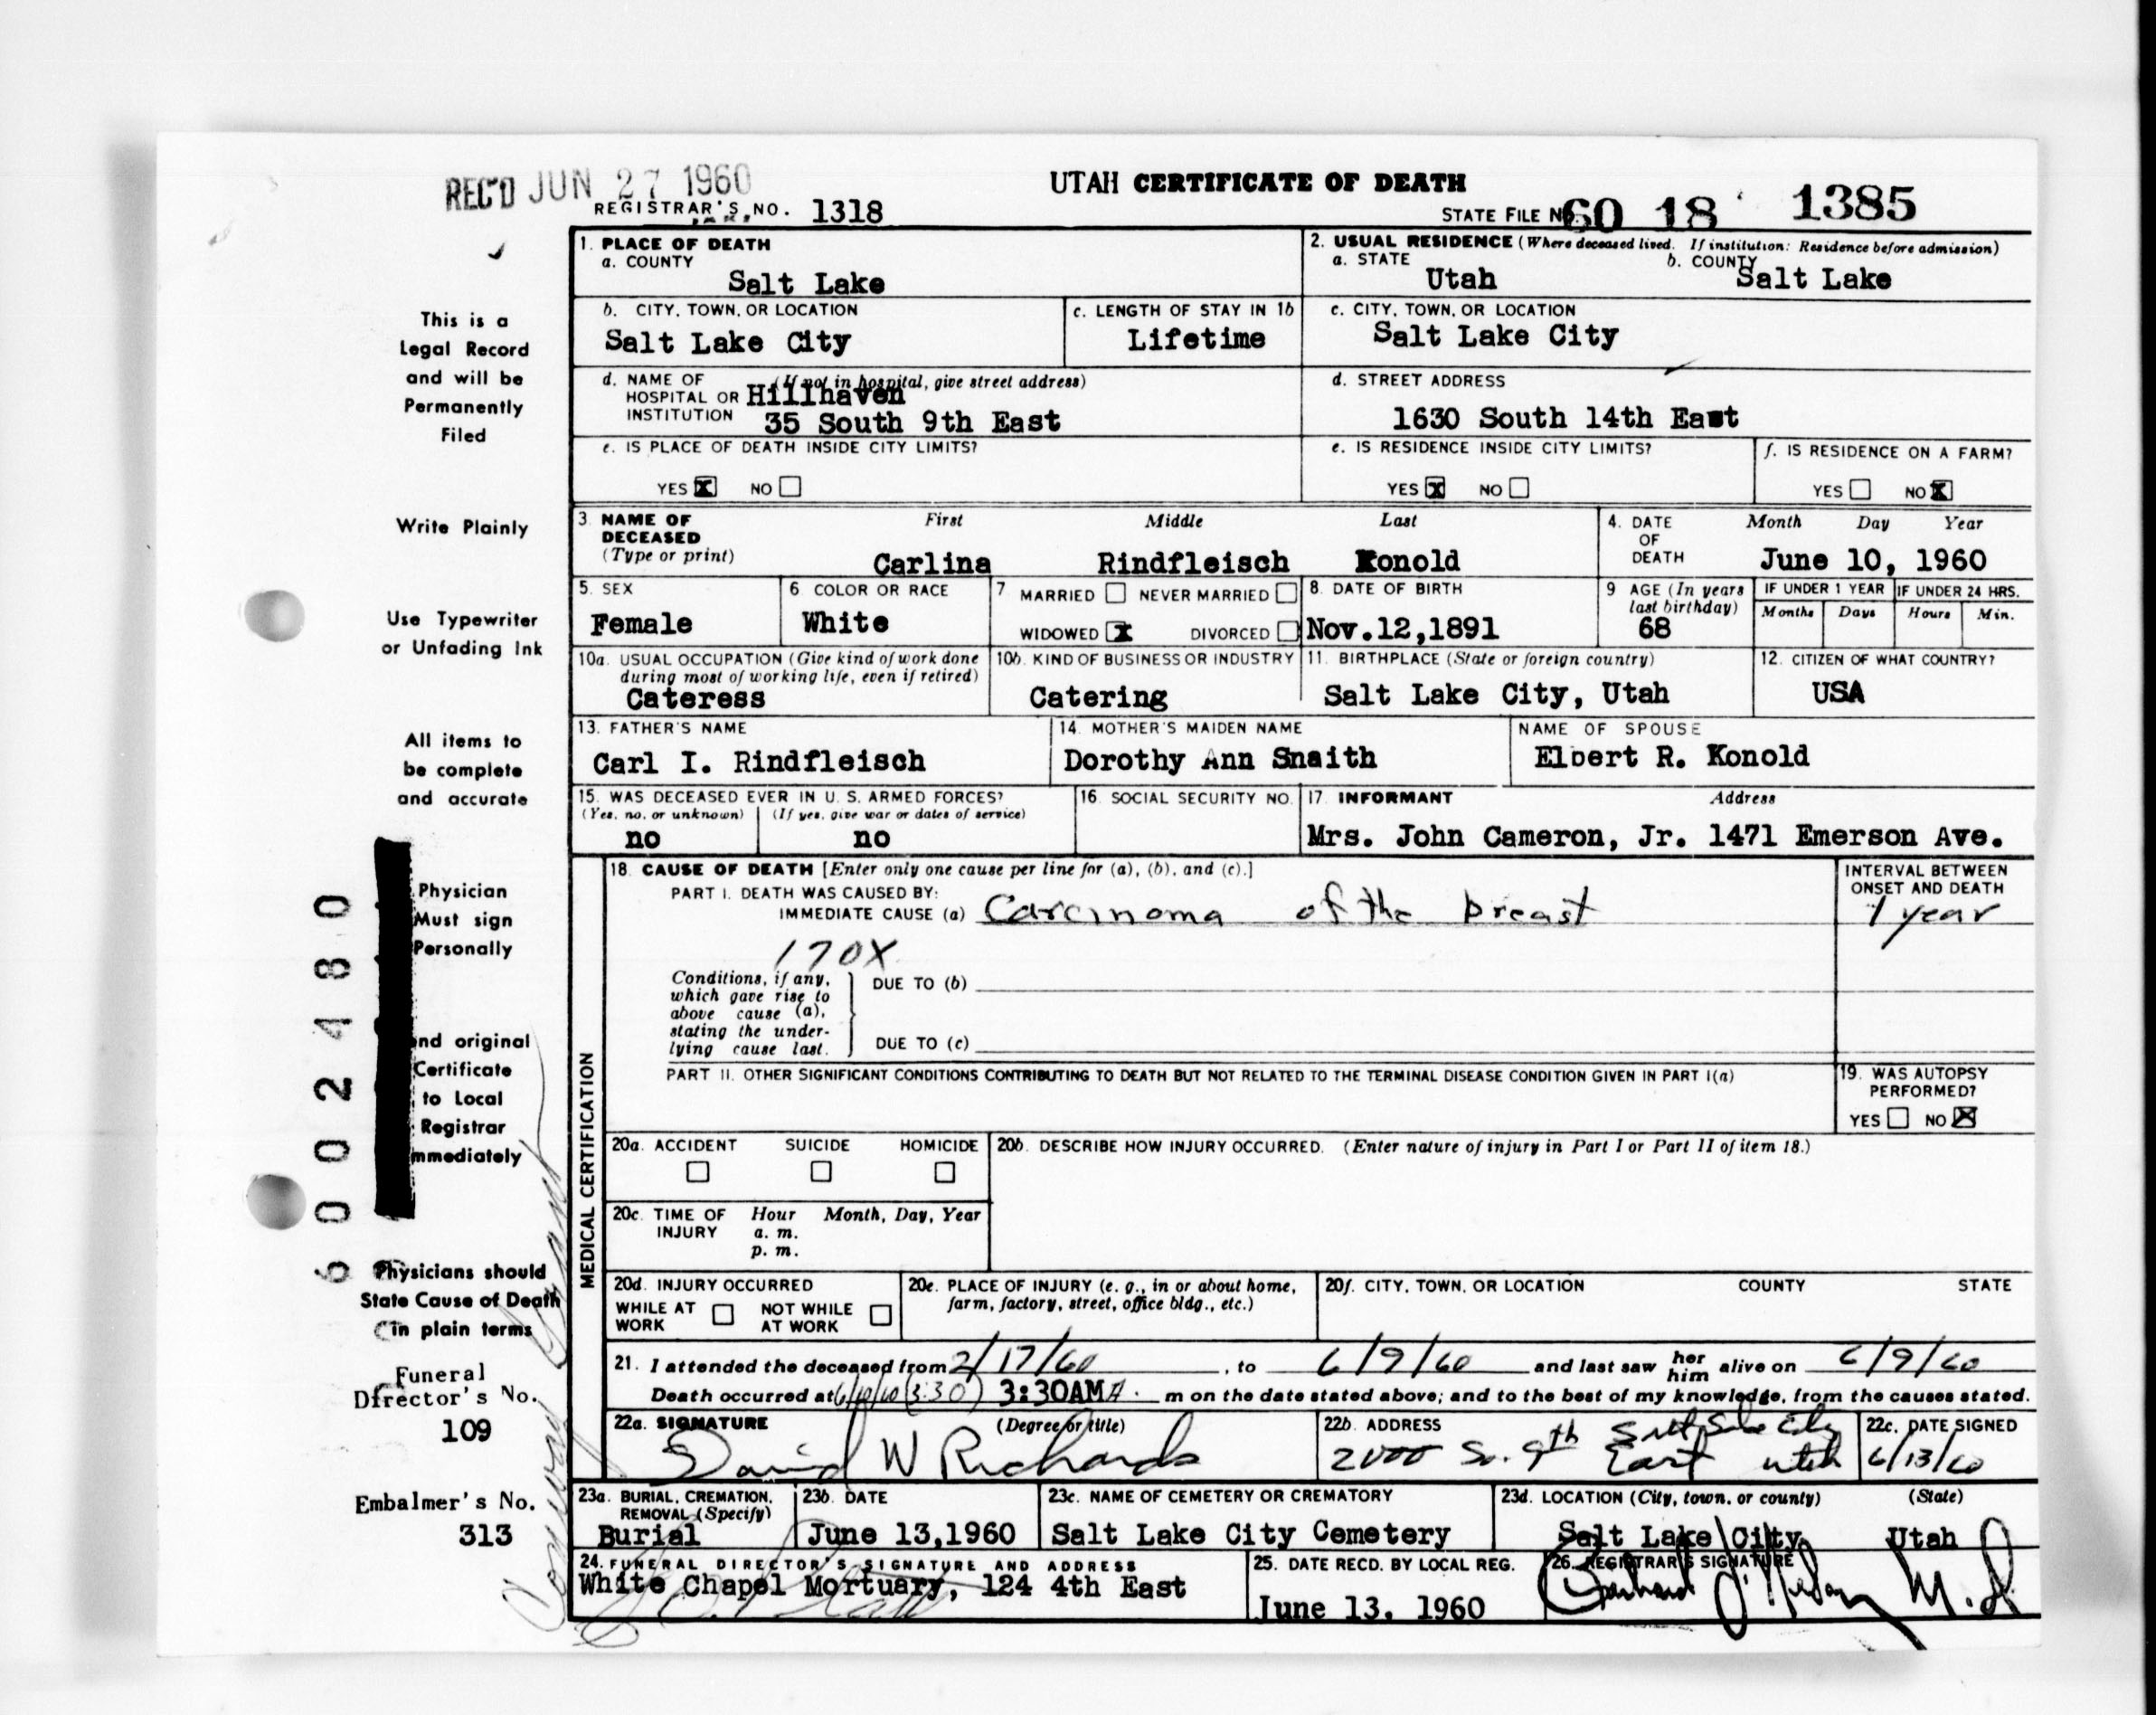 REC'D JUN 27 1960
UTAH CERTIFICATE OF DEATH
REGISTRAR'S NO. 1318
STATE FILE NO. 60 18 1385
This is a
Legal Record
and will be
Permanently
Filed
Write Plainly
Use Typewriter
or Unfading Ink
All items to
be complete
and accurate
Physician
Must sign
Personally
nd original
Certificate
to Local
Registrar
mmediately
Physicians should
State Cause of Death
in plain terms
Funeral
Director's No.
109
Embalmer's No.
313
6002480
1. PLACE OF DEATH
a. COUNTY
Salt Lake
2. USUAL RESIDENCE (Where deceased lived. If institution: Residence before admission)
a. STATE Utah b. COUNTY Salt Lake
b. CITY, TOWN, OR LOCATION
Salt Lake City
c. LENGTH OF STAY IN 1b
Lifetime
c. CITY, TOWN, OR LOCATION
Salt Lake City
d. NAME OF HOSPITAL OR INSTITUTION (If not in hospital, give street address)
Hillhaven
35 South 9th East
d. STREET ADDRESS
1630 South 14th East
e. IS PLACE OF DEATH INSIDE CITY LIMITS?
YES X NO
e. IS RESIDENCE INSIDE CITY LIMITS?
YES X NO
f. IS RESIDENCE ON A FARM?
YES NO X
3. NAME OF DECEASED (Type or print)
First Middle Last
Carlina Rindfleisch Konold
4. DATE OF DEATH
Month Day Year
June 10, 1960
5. SEX
Female
6. COLOR OR RACE
White
7. MARRIED NEVER MARRIED
WIDOWED X DIVORCED
8. DATE OF BIRTH
Nov.12,1891
9. AGE (In years last birthday)
68
IF UNDER 1 YEAR
Months Days
IF UNDER 24 HRS.
Hours Min.
10a. USUAL OCCUPATION (Give kind of work done during most of working life, even if retired)
Cateress
10b. KIND OF BUSINESS OR INDUSTRY
Catering
11. BIRTHPLACE (State or foreign country)
Salt Lake City, Utah
12. CITIZEN OF WHAT COUNTRY?
USA
13. FATHER'S NAME
Carl I. Rindfleisch
14. MOTHER'S MAIDEN NAME
Dorothy Ann Snaith
NAME OF SPOUSE
Elbert R. Konold
15. WAS DECEASED EVER IN U. S. ARMED FORCES?
(Yes, no, or unknown) (If yes, give war or dates of service)
no no
16. SOCIAL SECURITY NO.
17. INFORMANT Address
Mrs. John Cameron, Jr. 1471 Emerson Ave.
MEDICAL CERTIFICATION
18. CAUSE OF DEATH [Enter only one cause per line for (a), (b), and (c).]
PART I. DEATH WAS CAUSED BY:
IMMEDIATE CAUSE (a) Carcinoma of the breast
INTERVAL BETWEEN ONSET AND DEATH
1 year
170X
Conditions, if any, which gave rise to above cause (a), stating the underlying cause last.
DUE TO (b)
DUE TO (c)
PART II. OTHER SIGNIFICANT CONDITIONS CONTRIBUTING TO DEATH BUT NOT RELATED TO THE TERMINAL DISEASE CONDITION GIVEN IN PART I(a)
19. WAS AUTOPSY PERFORMED?
YES NO X
20a. ACCIDENT SUICIDE HOMICIDE
20b. DESCRIBE HOW INJURY OCCURRED. (Enter nature of injury in Part I or Part II of item 18.)
20c. TIME OF INJURY Hour Month, Day, Year
a. m.
p. m.
20d. INJURY OCCURRED
WHILE AT WORK NOT WHILE AT WORK
20e. PLACE OF INJURY (e. g., in or about home, farm, factory, street, office bldg., etc.)
20f. CITY, TOWN, OR LOCATION COUNTY STATE
21. I attended the deceased from 2/17/60, to 6/9/60 and last saw her him alive on 6/9/60
Death occurred at 6/10/60 (3:30) 3:30AM A. m on the date stated above; and to the best of my knowledge, from the causes stated.
22a. SIGNATURE (Degree or title)
David W Richards
22b. ADDRESS
2000 So. 9th East Salt Lake City Utah
22c. DATE SIGNED
6/13/60
23a. BURIAL, CREMATION, REMOVAL (Specify)
Burial
23b. DATE
June 13,1960
23c. NAME OF CEMETERY OR CREMATORY
Salt Lake City Cemetery
23d. LOCATION (City, town, or county) (State)
Salt Lake City Utah
24. FUNERAL DIRECTOR'S SIGNATURE AND ADDRESS
White Chapel Mortuary, 124 4th East
25. DATE RECD. BY LOCAL REG.
June 13, 1960
26. REGISTRAR'S SIGNATURE
M.D.